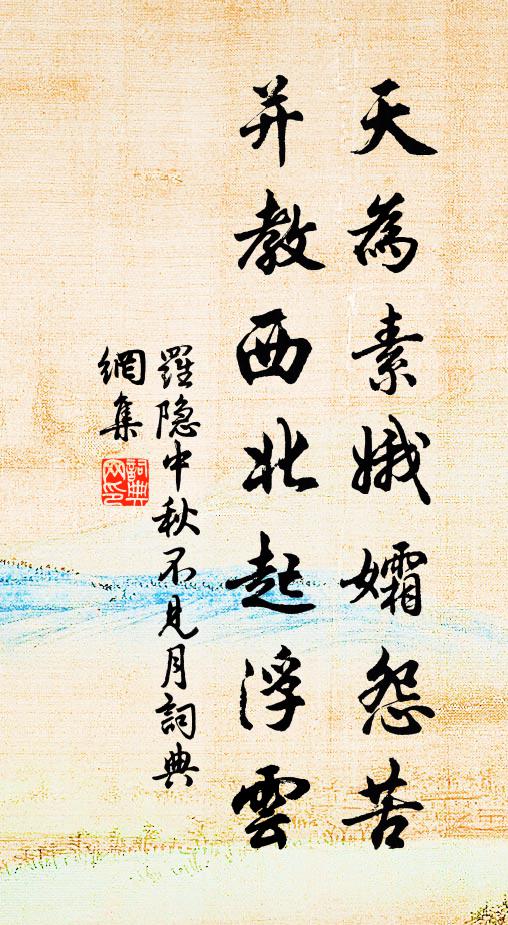 天為素娥孀怨苦
并教西北起浮雲
羅隐中秋不見月詞典
網集
詞典
网印